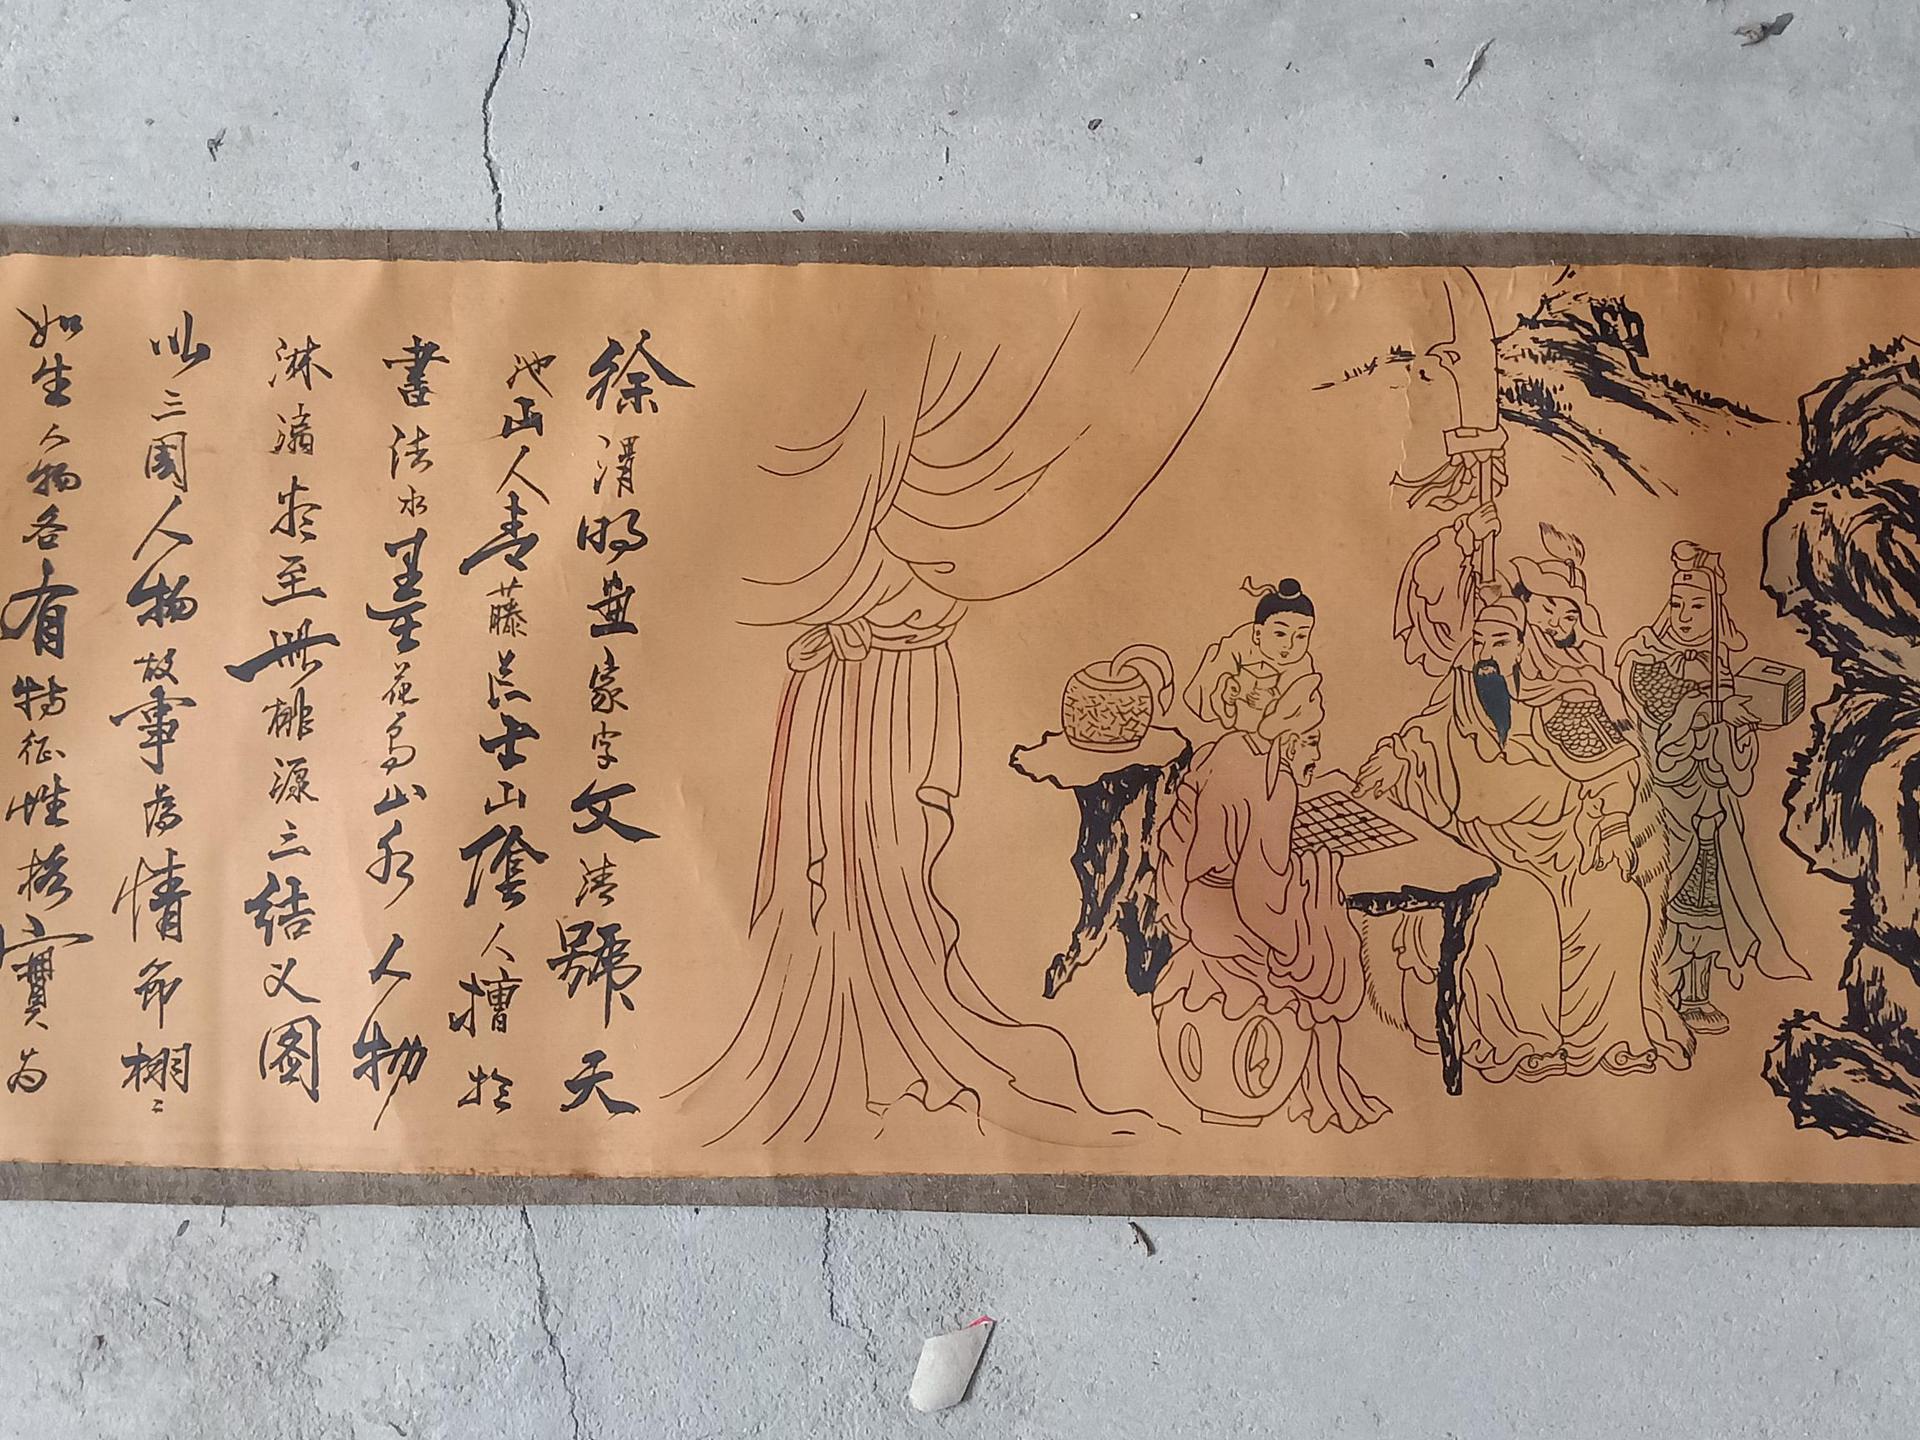 徐渭明畫家字文清號天
池山人青藤道士山陰人擅於
書法水墨花鳥山水人物
淋漓盡至此桃源三结义图
以三國人物故事為情節栩〻
如生人物各有特征性格實為